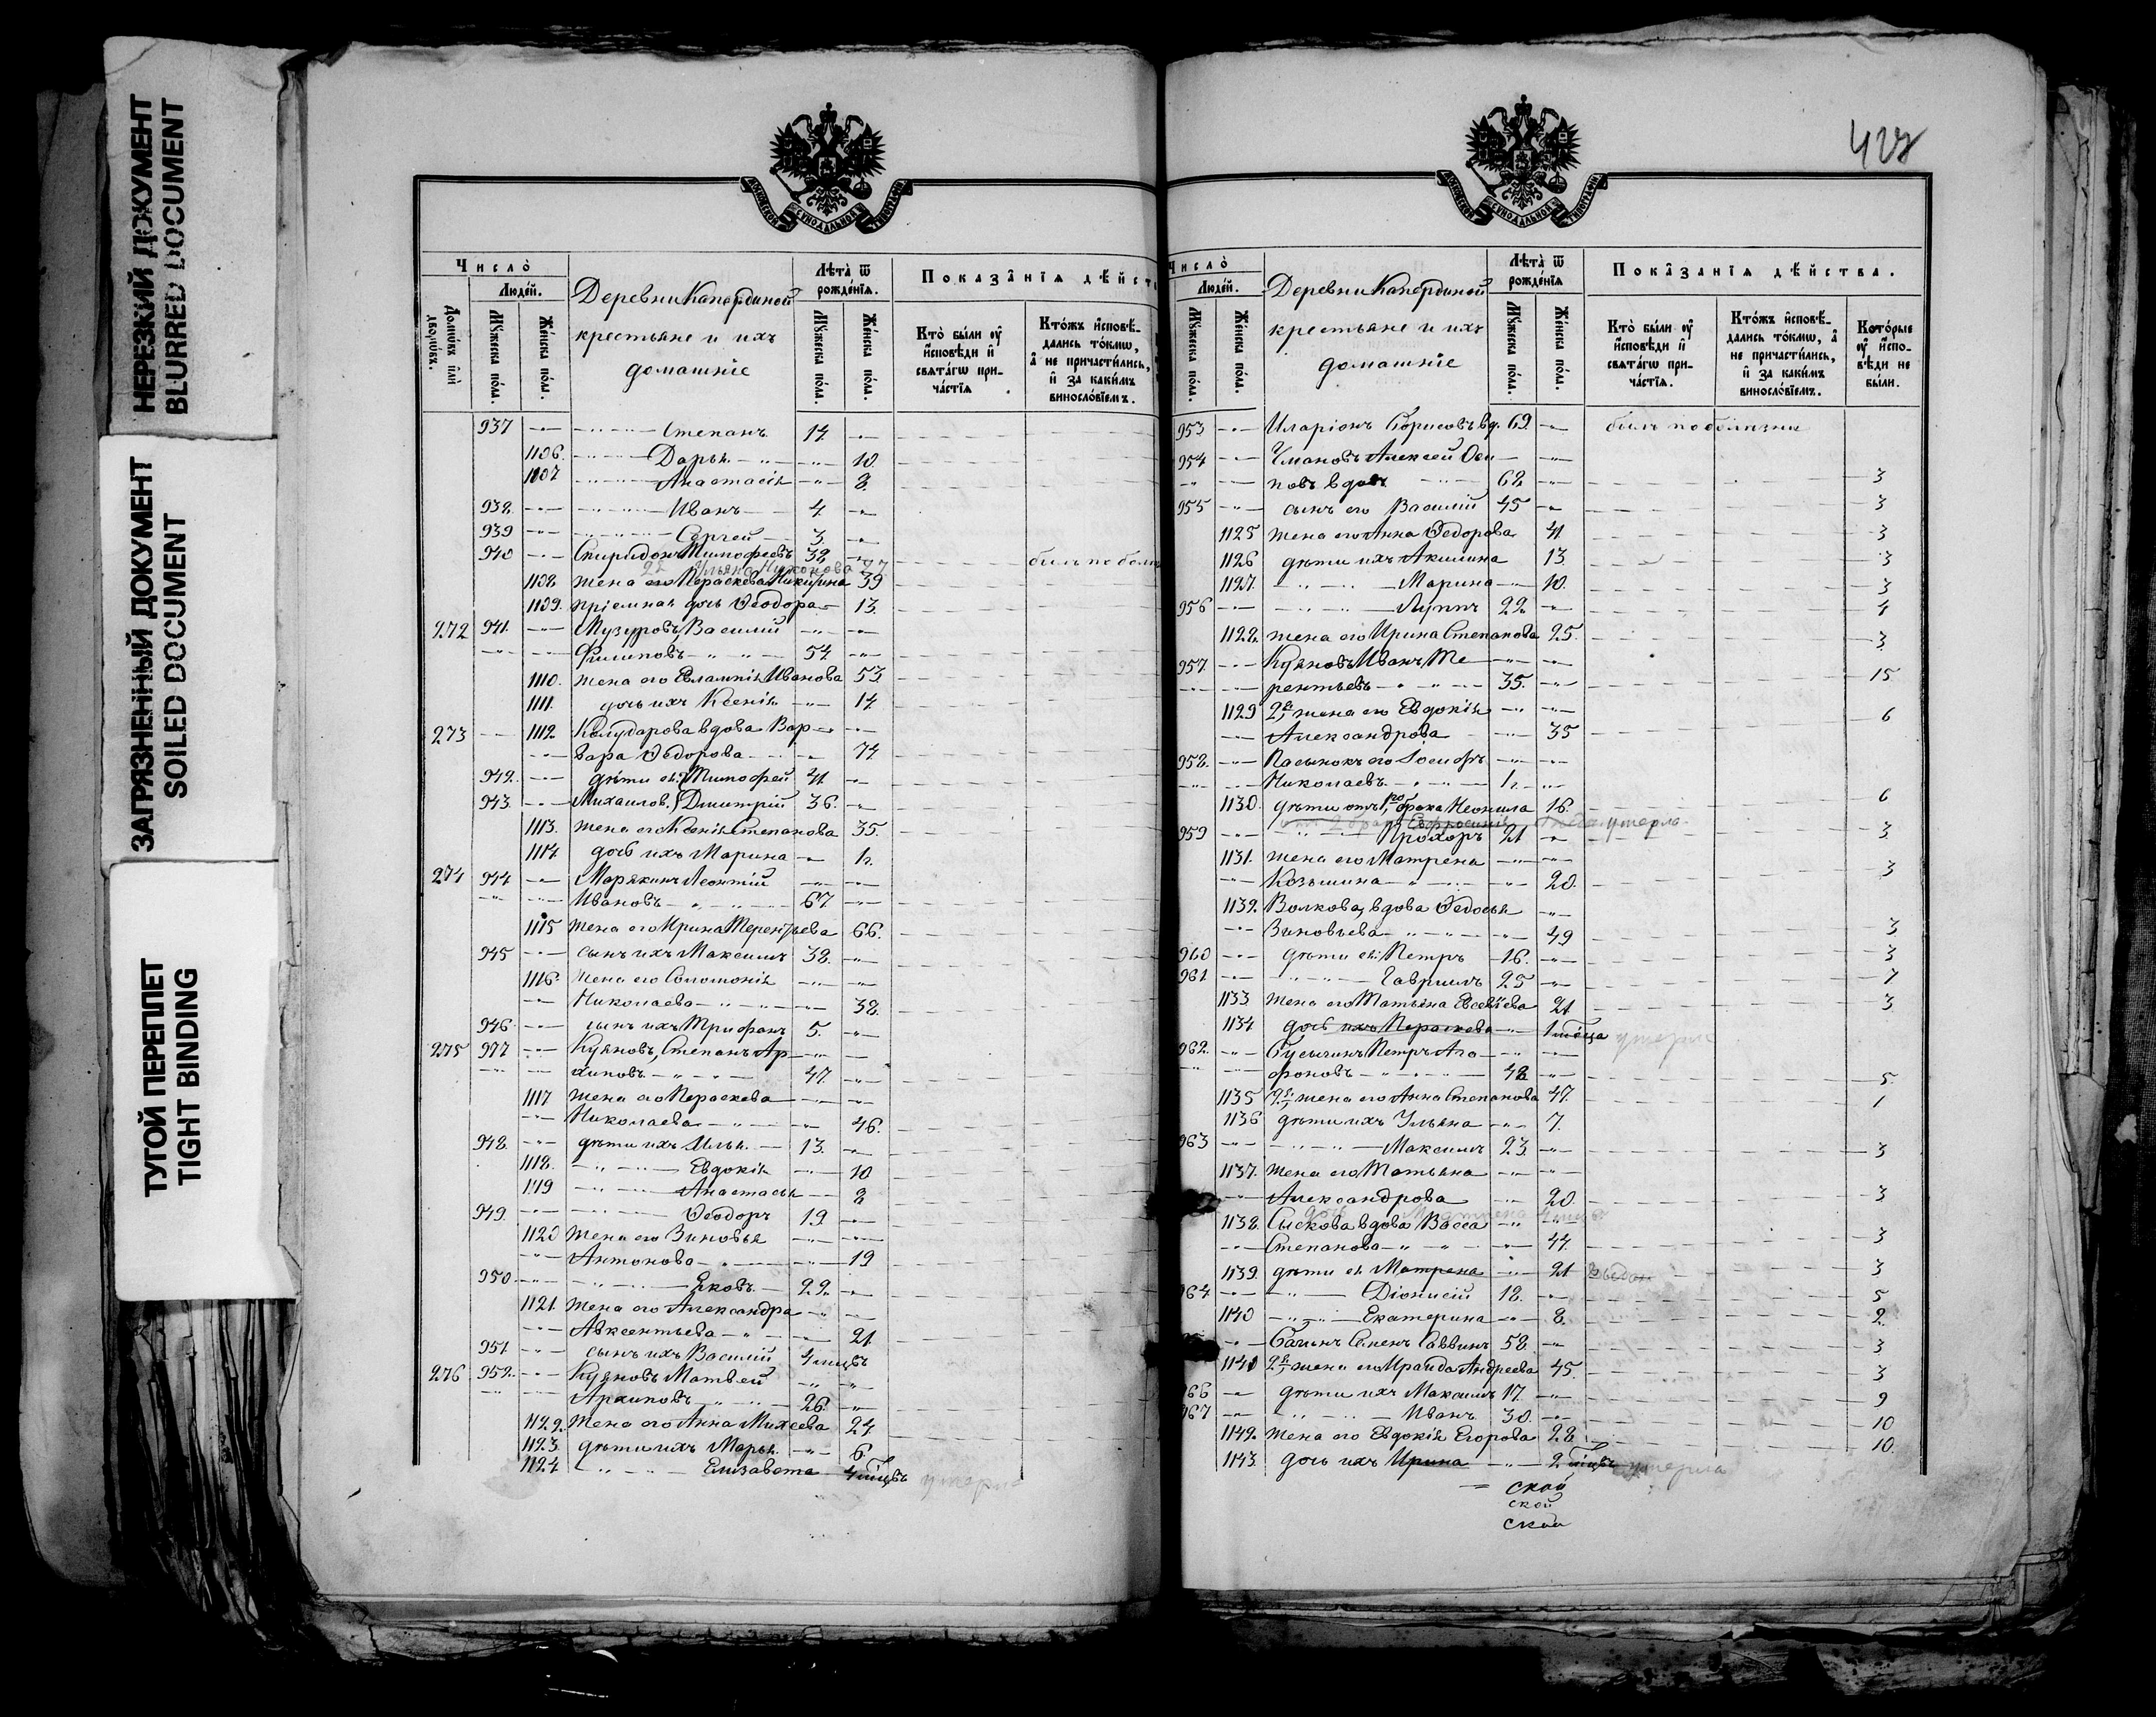 НЕРЕЗКИЙ ДОКУМЕНТ
BLURRED DOCUMENT
ЗАГРЯЗНЕННЫЙ ДОКУМЕНТ
SOILED DOCUMENT
ТУГОЙ ПЕРЕПЛЕТ
TIGHT BINDING
МОСКОВСКОЙ СѴНОДАЛЬНОЙ ТИПОГРАФІИ
Число̀
Людей.
Домѡвъ и҆лѝ дворѡвъ.
Мꙋжеска пола.
Женска пола.
Деревни Капординой
крестьяне и ихъ
домашніе
Лѣта̀ ѿ рожденїѧ.
Мꙋжеска пола.
Женска пола.
Показанїѧ дѣйст
Кто̀ были оу҆ и҆сповѣди и҆ свѧтагѡ причастїѧ
Ктожъ и҆сповѣдались токмѡ, а҆ не причастились, и҆ за какимъ винословїемъ.
937 Степанъ 14
1106 Дарья 10
1107 Анастасія 8
938 Иванъ 4
939 Сергей 3
940 Спиридонъ Тимофеевъ 38
Ульяна 27
1108 жена его Параскева Никитина 39
1109 пріемная дочь Ѳеодора 13
272 941 Музуровъ, Василій
Филиповъ 54
1110 жена его Евлампія Иванова 53
1111 дочь ихъ Ксенія 14
273 1112 Колударова вдова Вар-
вара Ѳедорова 74
942 дѣти ея: Тимофей 41
943 Михаилов. Дмитрій 36
1113 жена его Ксенія Степанова 35
1114 дочь ихъ Марина
274 944 Марякинъ Леонтій
Ивановъ 67
1115 жена его Ирина Терентьева 66
945 сынъ ихъ Максимъ 38
1116 жена его Соломонія
Николаева 38
946 сынъ ихъ Трифонъ 5
275 977 Куяновъ, Степанъ Ар-
хиповъ 47
1117 жена его Параскева
Николаева 46
948 дѣти ихъ Илья 13
1118 Евдокія 10
1119 Анастасія 8
949 Ѳеодоръ 19
1120 жена его Зиновья
Антонова 19
950 Яковъ 22
1121 жена его Александра
Авксентьева 21
951 сынъ ихъ Василій 4 мцвъ
276 952 Куяновъ Матвей
Архиповъ 26
1122 жена его Анна Михеева 24
1123 дѣти ихъ Марья 6
1124 Елизавета 4 мцвъ умерла
427
МОСКОВСКОЙ СѴНОДАЛЬНОЙ ТИПОГРАФІИ
Число̀
Людей.
Мꙋжеска пола.
Женска пола.
Деревни Капординой
крестьяне и ихъ
домашніе
Лѣта̀ ѿ рожденїѧ
Мꙋжеска пола.
Женска пола.
Показанїѧ дѣйства.
Кто̀ были оу҆ и҆сповѣди и҆ свѧтагѡ причастїѧ.
Ктожъ и҆сповѣдались токмѡ, а҆ не причастились, и҆ за какимъ винословїемъ.
Которые оу҆ и҆сповѣди не были.
953 Иларіонъ Борисовъ вд. 69 былъ по болѣзни
954 Чмановъ Алексей Оси-
повъ вдовъ 68 3
955 сынъ его Василій 45 3
1125 жена его Анна Ѳедорова 41 3
1126 дѣти ихъ Акилина 13 3
1127 Марина 10 3
956 Луппъ 22 4
1128 жена его Ирина Степанова 25 3
957 Куяновъ Иванъ Те-
рентьевъ 35 15
1129 2я жена его Евдокія 6
Александрова 35
958 Пасынокъ его Іосифъ
Николаевъ
1130 дѣти отъ 1го брака Неонила 16 6
отъ 2 брака Евфросинія умерла
959 Прохоръ 21 3
1131 жена его Матрена 3
Козьмина 20
1132 Волкова, вдова Ѳедосья
Зиновьева 49 3
960 дѣти ея: Петръ 16 3
961 Гавріилъ 25 7
1133 жена его Татьяна Евсевіева 21 3
1134 дочь ихъ Параскева умерла
962 Бусыгинъ Петръ Ага-
фоновъ 48 5
1135 2я жена его Анна Степанова 47 1
1136 дѣти ихъ Ульяна 7
963 Максимъ 23 3
1137 жена его Татьяна
Александрова 20 3
1138 Сыскова вдова Васса
Степанова 44 3
1139 дѣти ея Матрена 21 3
964 Діонисій 18 5
1140 Екатерина 8 2
Багинъ Семенъ Саввинъ 58 3
1141 2я жена его Ираида Андреева 45 3
966 дѣти ихъ Максимъ 17 9
967 Иванъ 30 10
1142 жена его Евдокія Егорова 28 10
1143 дочь ихъ Ирина 2 мцвъ умерла
ской
ской
ской